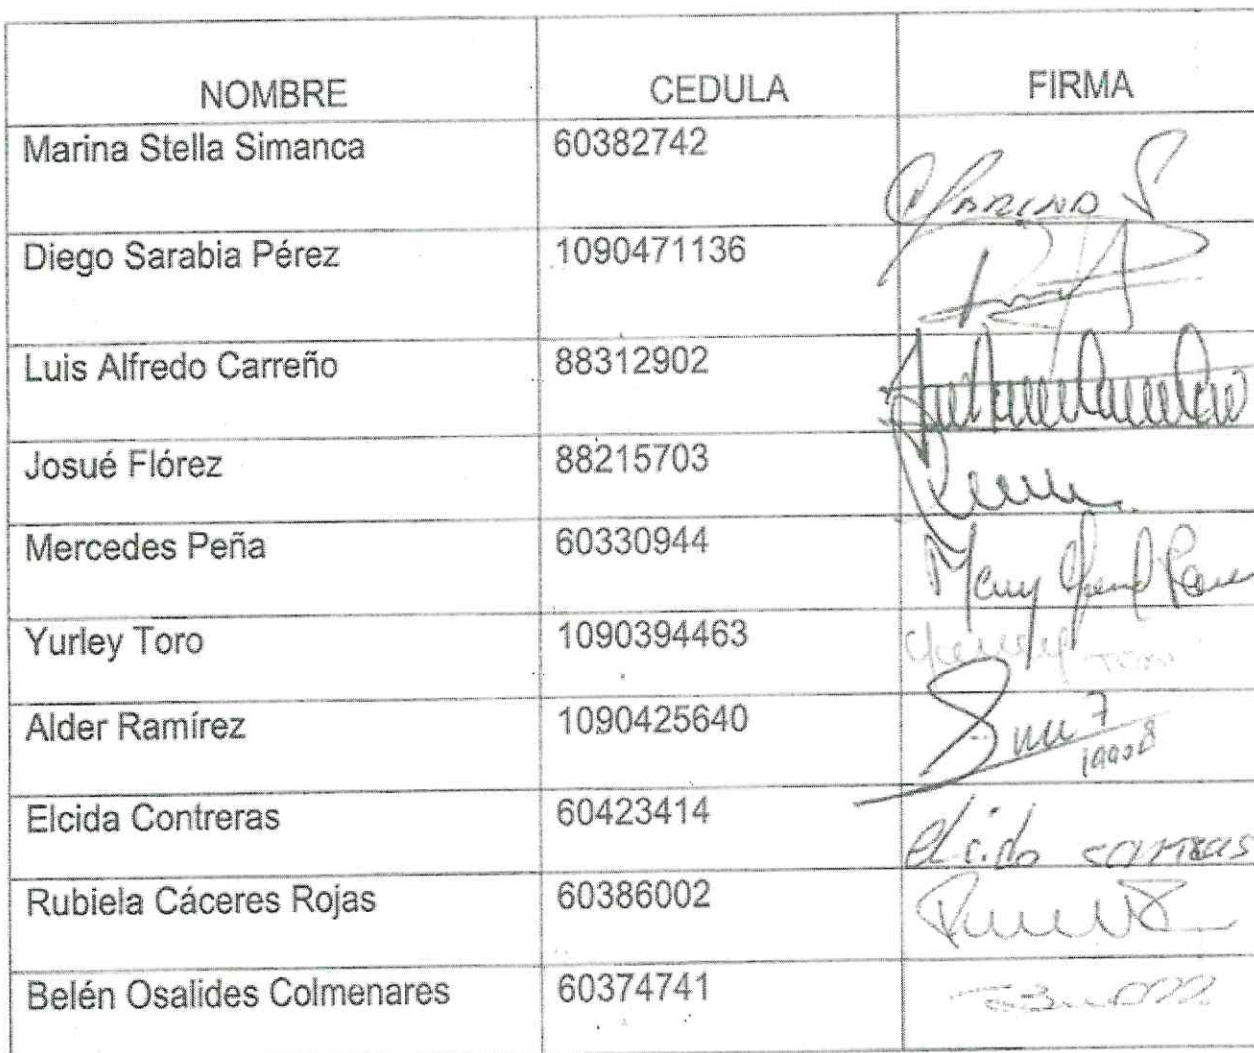 NOMBRE CEDULA FIRMA
Marina Stella Simanca 60382742 Marina S
Diego Sarabia Pérez 1090471136
Luis Alfredo Carreño 88312902
Josué Flórez 88215703
Mercedes Peña 60330944
Yurley Toro 1090394463 Toro
Alder Ramírez 1090425640
Elcida Contreras 60423414
Rubiela Cáceres Rojas 60386002
Belén Osalides Colmenares 60374741